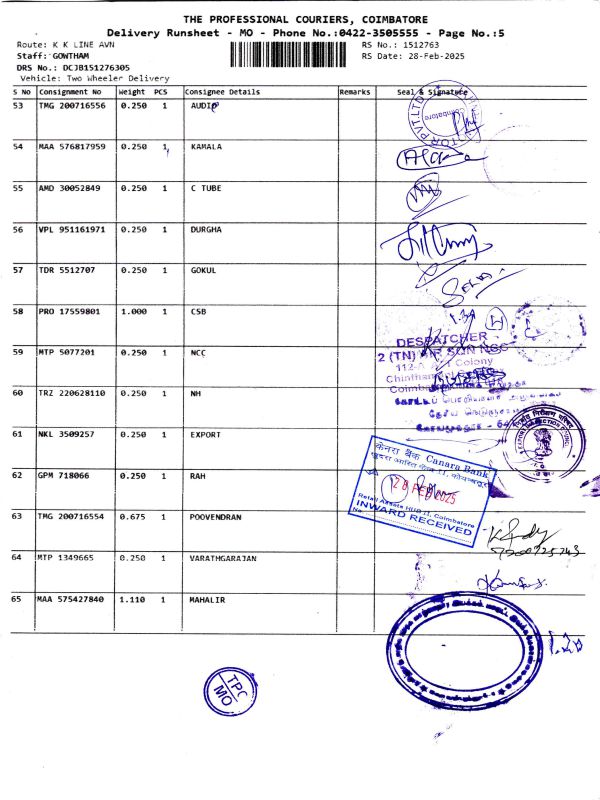 THE PROFESSIONAL COURIERS, COIMBATORE
Delivery Runsheet - MO - Phone No.:0422-3505555 - Page No.:5
Route: K K LINE AVN
RS No.: 1512763
Staff: GOWTHAM
RS Date: 28-Feb-2025
DRS No.: DCJB151276305
Vehicle: Two Wheeler Delivery
S No Consignment No Weight PCS Consignee Details Remarks Seal & Signature
53 TMG 200716556 0.250 1 AUDIO
54 MAA 576817959 0.250 1 KAMALA
55 AMD 30052849 0.250 1 C TUBE
56 VPL 951161971 0.250 1 DURGHA
57 TDR 5512707 0.250 1 GOKUL
58 PRO 17559801 1.000 1 CSB
DESPATCHER
59 MTP 5077201 0.250 1 NCC
2 (TN)
112-A
Colony
60 TRZ 220628110 0.250 1 NH
61 NKL 3509257 0.250 1 EXPORT
केनरा बैंक Canara Bank
62 GPM 718066 0.250 1 RAH
28 FEB 2025
Retail Assets HUB II, Coimbatore
INWARD RECEIVED
63 TMG 200716554 0.675 1 POOVENDRAN
64 MTP 1349665 0.250 1 VARATHGARAJAN
65 MAA 575427840 1.110 1 MAHALIR
TPC
MO